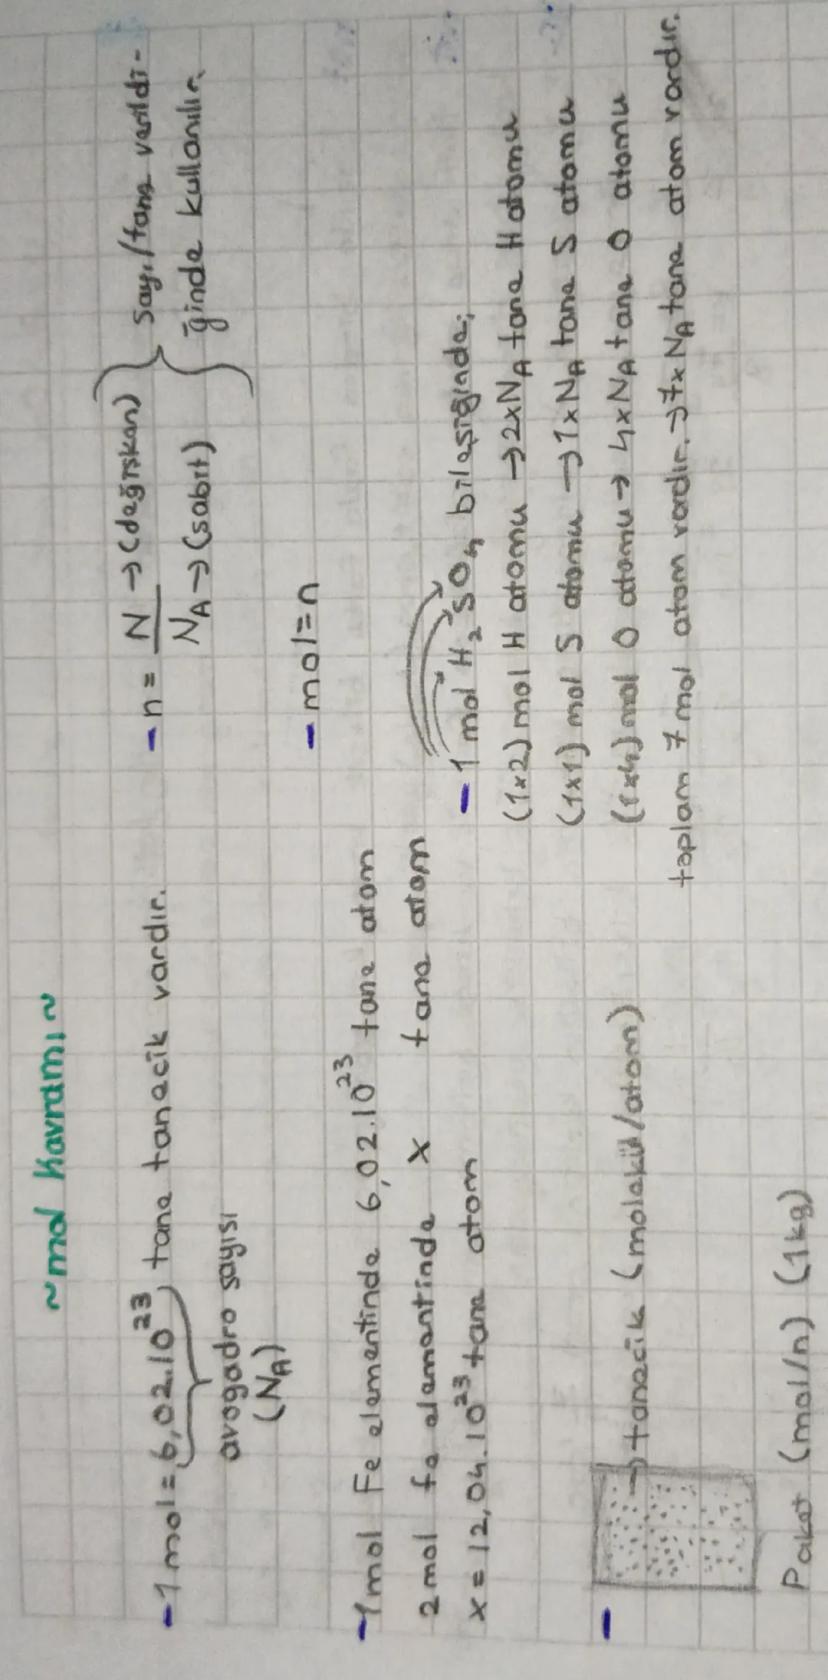 ~mol Kavramı~
-1mol=6,02.10²³ tane tanecik vardır.
avogadro sayısı
(NA)
-1mol Fe elementinde 6,02.10²³ tane atom
2mol fe elementinde x tane atom
x=12,04.10²³ tane atom
- →tanecik (molekül/atom)
Paket (mol/n) (1kg)
-n = N →(değişkan)
NA→(sabit)
Sayı/tane verildi-
ğinde kullanılır.
-mol=n
-1 mol H₂SO₄ bileşiğinde;
(1x2)mol H atomu →2xNA tane H atomu
(1x1) mol S atomu →1xNA tane S atomu
(1x4)mol O atomu→ 4xNA tane O atomu
toplam 7 mol atom vardır.→7xNA tane atom vardır.